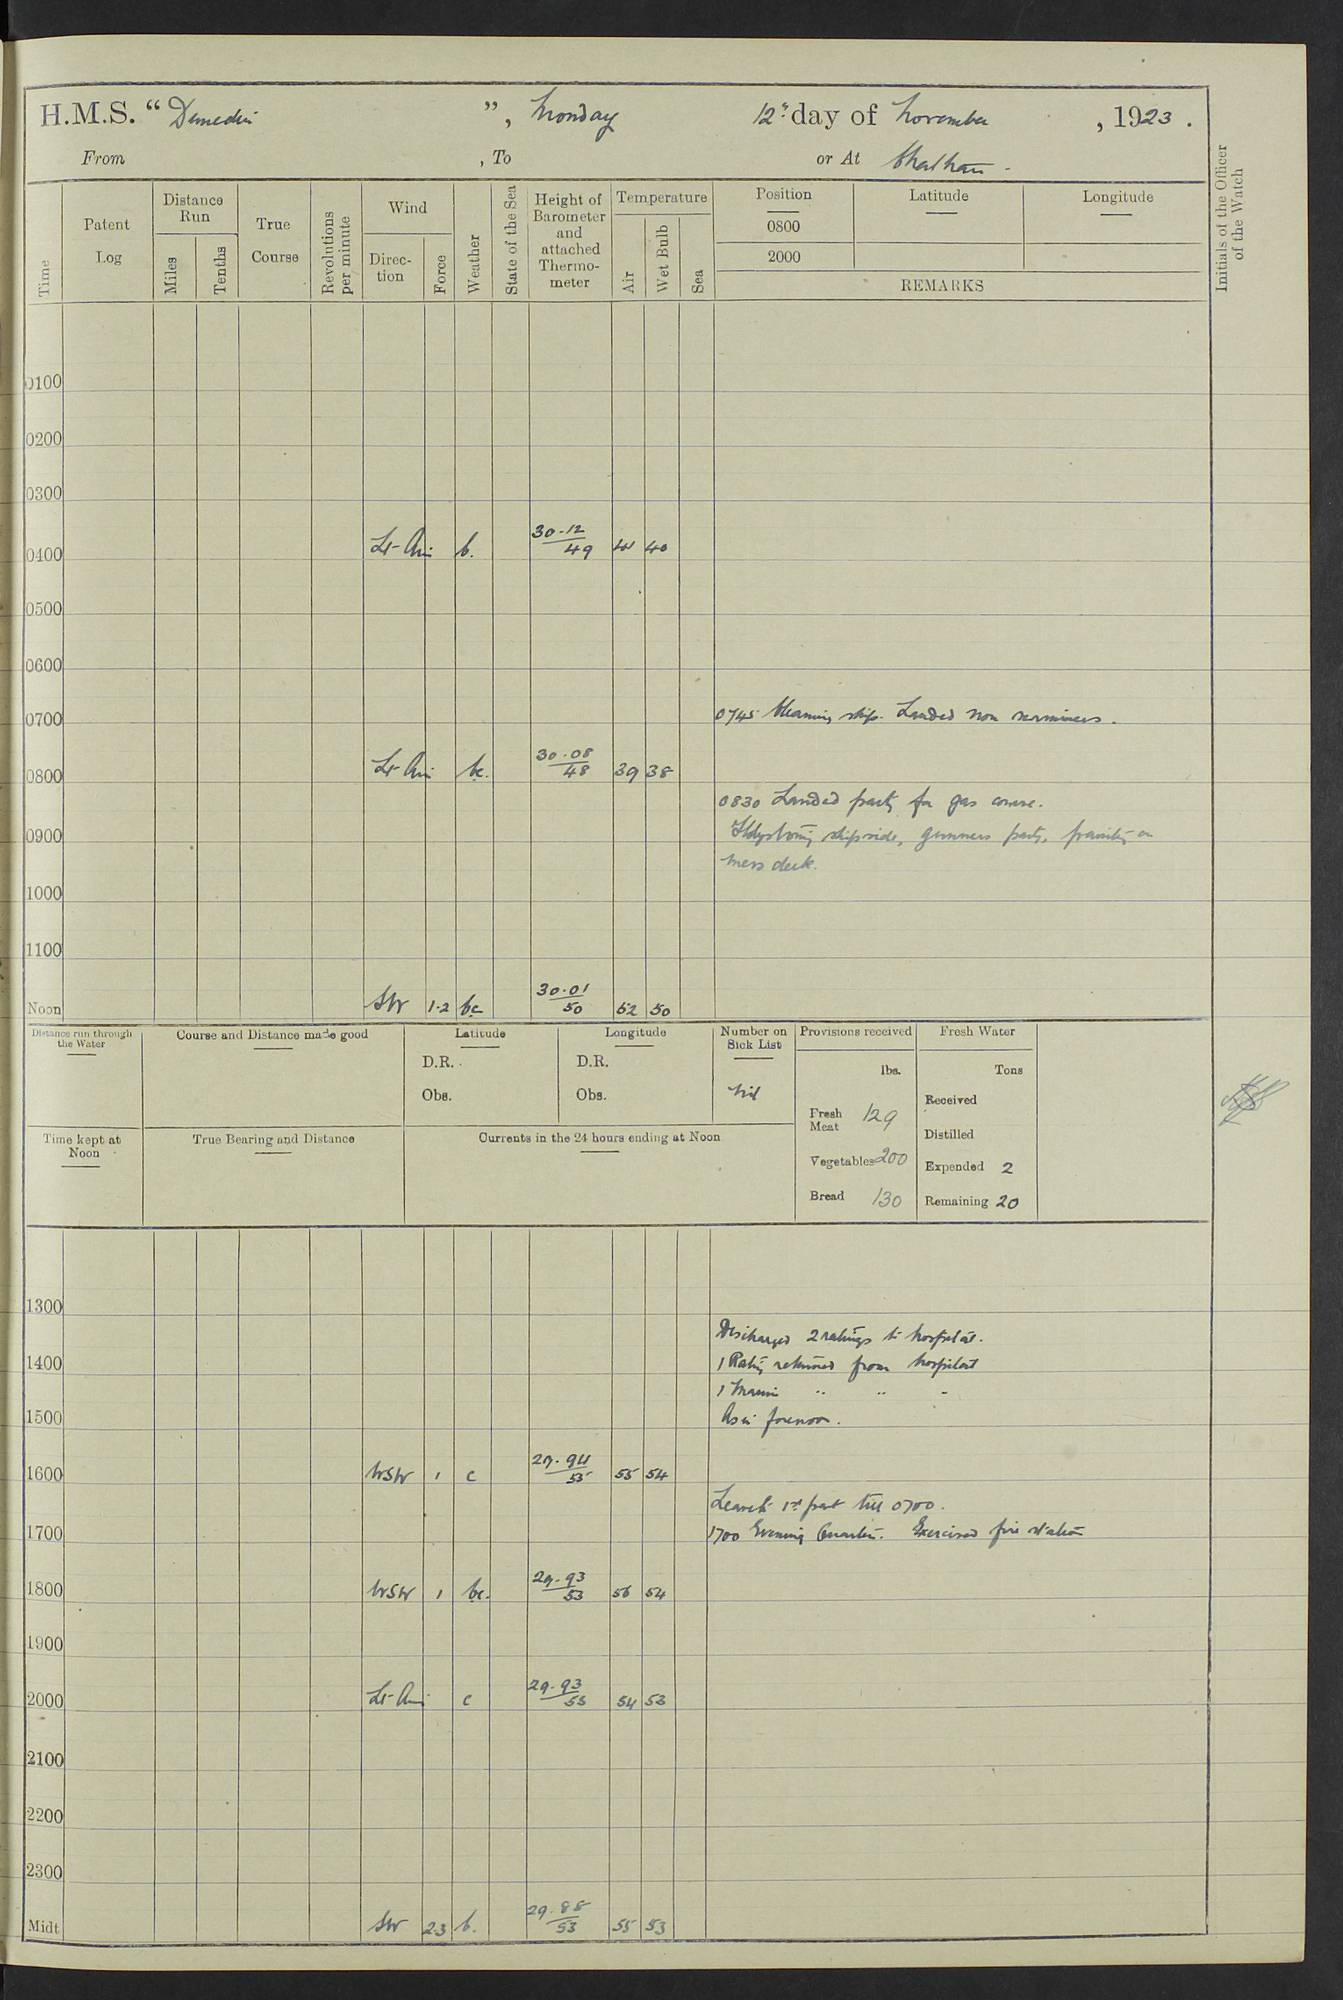 H.M.S. " Dunedin ", Monday 12th day of November, 1923.
From , To or At Chatham.
Time
Patent Log
Distance Run
Miles
Tenths
True Course
Revolutions per minute
Wind
Direction
Force
Weather
State of the Sea
Height of Barometer and attached Thermometer
Temperature
Air
Wet Bulb
Sea
Position
Latitude
Longitude
0800
2000
REMARKS
Initials of the Officer of the Watch
0100
0200
0300
0400 Lt-Air b. 30.12/49 41 40
0500
0600
0700
0745 Cleaning ship. Landed non swimmers.
0800 Lt-Air bc. 30.08/48 39 38
0830 Landed party for gas course.
0900 shipside, gunners party, painting on
mess deck.
1000
1100
Noon SW 1-2 bc 30.01/50 52 50
Distance run through the Water
Course and Distance made good
Latitude
D.R.
Obs.
Longitude
D.R.
Obs.
Number on Sick List
Nil
Provisions received
lbs.
Fresh Meat 129
Vegetables 200
Bread 130
Fresh Water
Tons
Received
Distilled
Expended 2
Remaining 20
Time kept at Noon
True Bearing and Distance
Currents in the 24 hours ending at Noon
1300
Discharged 2 ratings to hospital.
1400 1 Rating returned from hospital
1 Marine " " "
1500 As in forenoon.
1600 WSW 1 c 29.94/55 55 54
Leave to 1st part till 0700.
1700 1700 Evening Quarters. Exercised fire stations
1800 WSW 1 bc. 29.93/53 56 54
1900
2000 Lt-Air c 29.93/53 54 53
2100
2200
2300
Midt SW 2-3 b. 29.88/53 55 53